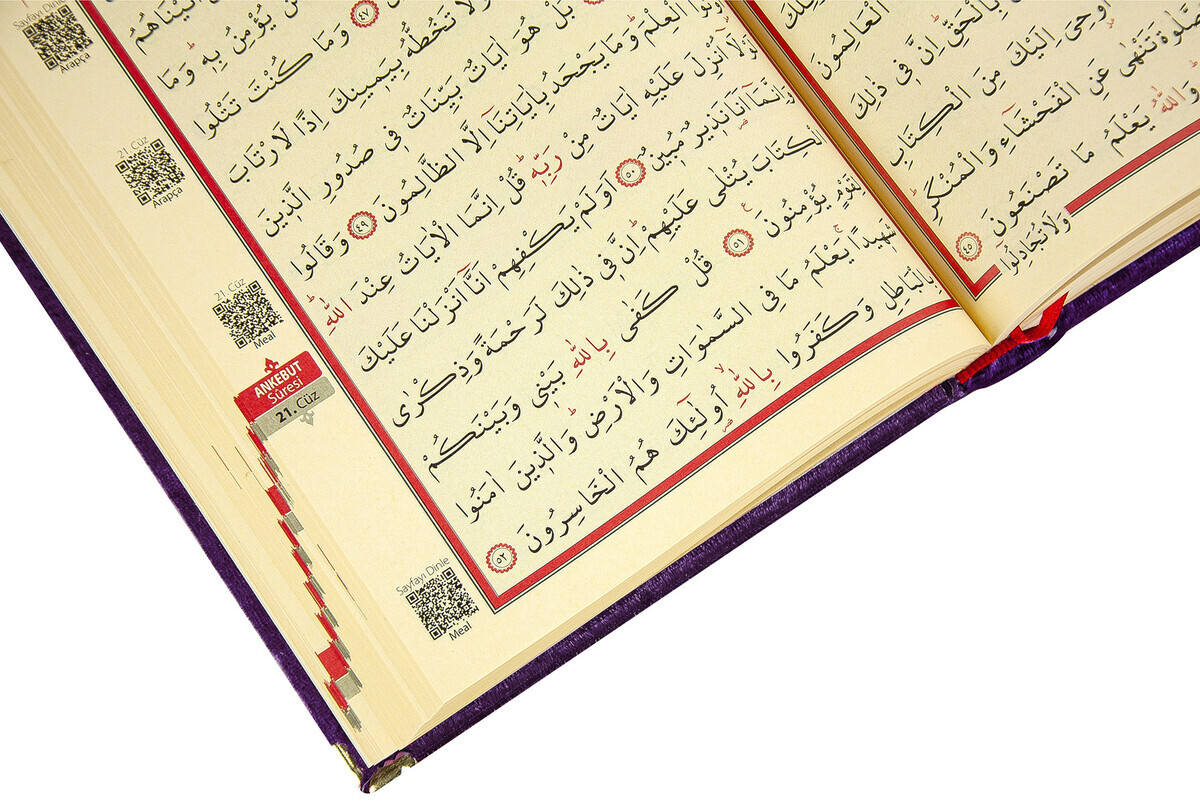 الْعَالِمُونَ
بِالْحَقِّ اِنَّ فٖي ذٰلِكَ
اُوحِيَ اِلَيْكَ مِنَ الْكِتَابِ
تَنْهٰى عَنِ الْفَحْشَٓاءِ وَالْمُنْكَرِ
وَاللّٰهُ يَعْلَمُ مَا تَصْنَعُونَ ٤٥
وَلَا تُجَادِلُٓوا
اٰتَيْنَاهُمُ
يُؤْمِنُ بِهٖ وَمَا
٤٧ وَمَا كُنْتَ تَتْلُوا
وَلَا تَخُطُّهُ بِيَمٖينِكَ اِذًا لَارْتَابَ
بَلْ هُوَ اٰيَاتٌ بَيِّنَاتٌ فٖي صُدُورِ الَّذٖينَ
الْعِلْمَ وَمَا يَجْحَدُ بِاٰيَاتِنَٓا اِلَّا الظَّالِمُونَ ٤٩ وَقَالُوا
لَوْلَٓا اُنْزِلَ عَلَيْهِ اٰيَاتٌ مِنْ رَبِّهٖ قُلْ اِنَّمَا الْاٰيَاتُ عِنْدَ اللّٰهِ
وَاِنَّمَٓا اَنَا نَذٖيرٌ مُبٖينٌ ٥٠ اَوَلَمْ يَكْفِهِمْ اَنَّٓا اَنْزَلْنَا عَلَيْكَ
الْكِتَابَ يُتْلٰى عَلَيْهِمْ اِنَّ فٖي ذٰلِكَ لَرَحْمَةً وَذِكْرٰى
لِقَوْمٍ يُؤْمِنُونَ ٥١ قُلْ كَفٰى بِاللّٰهِ بَيْنٖي وَبَيْنَكُمْ
شَهٖيدًا يَعْلَمُ مَا فِي السَّمٰوَاتِ وَالْاَرْضِ وَالَّذٖينَ اٰمَنُوا
بِالْبَاطِلِ وَكَفَرُوا بِاللّٰهِ اُو۬لٰٓئِكَ هُمُ الْخَاسِرُونَ ٥٢
Sayfayı Dinle
Arapça
21. Cüz
Arapça
21. Cüz
Meal
ANKEBUT
Sûresi
21. Cüz
Sayfayı Dinle
Meal